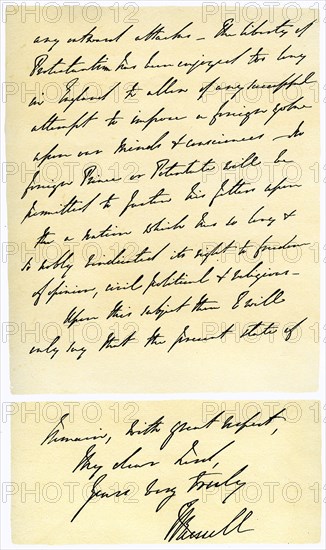 any external attacks — The liberty of
Protestantism has been enjoyed too long
in England to allow of any successful
attempt to impose a foreign yoke
upon our minds & consciences — No
foreign Prince or Potentate will be
permitted to fasten his fetters upon
a nation which has so long &
so nobly vindicated its right to freedom
of opinion, civil political & religious —
Upon this subject then I will
only say that the present state of
Remain, with great respect,
My dear Lord,
Yours very truly
J Russell
PHOTO12